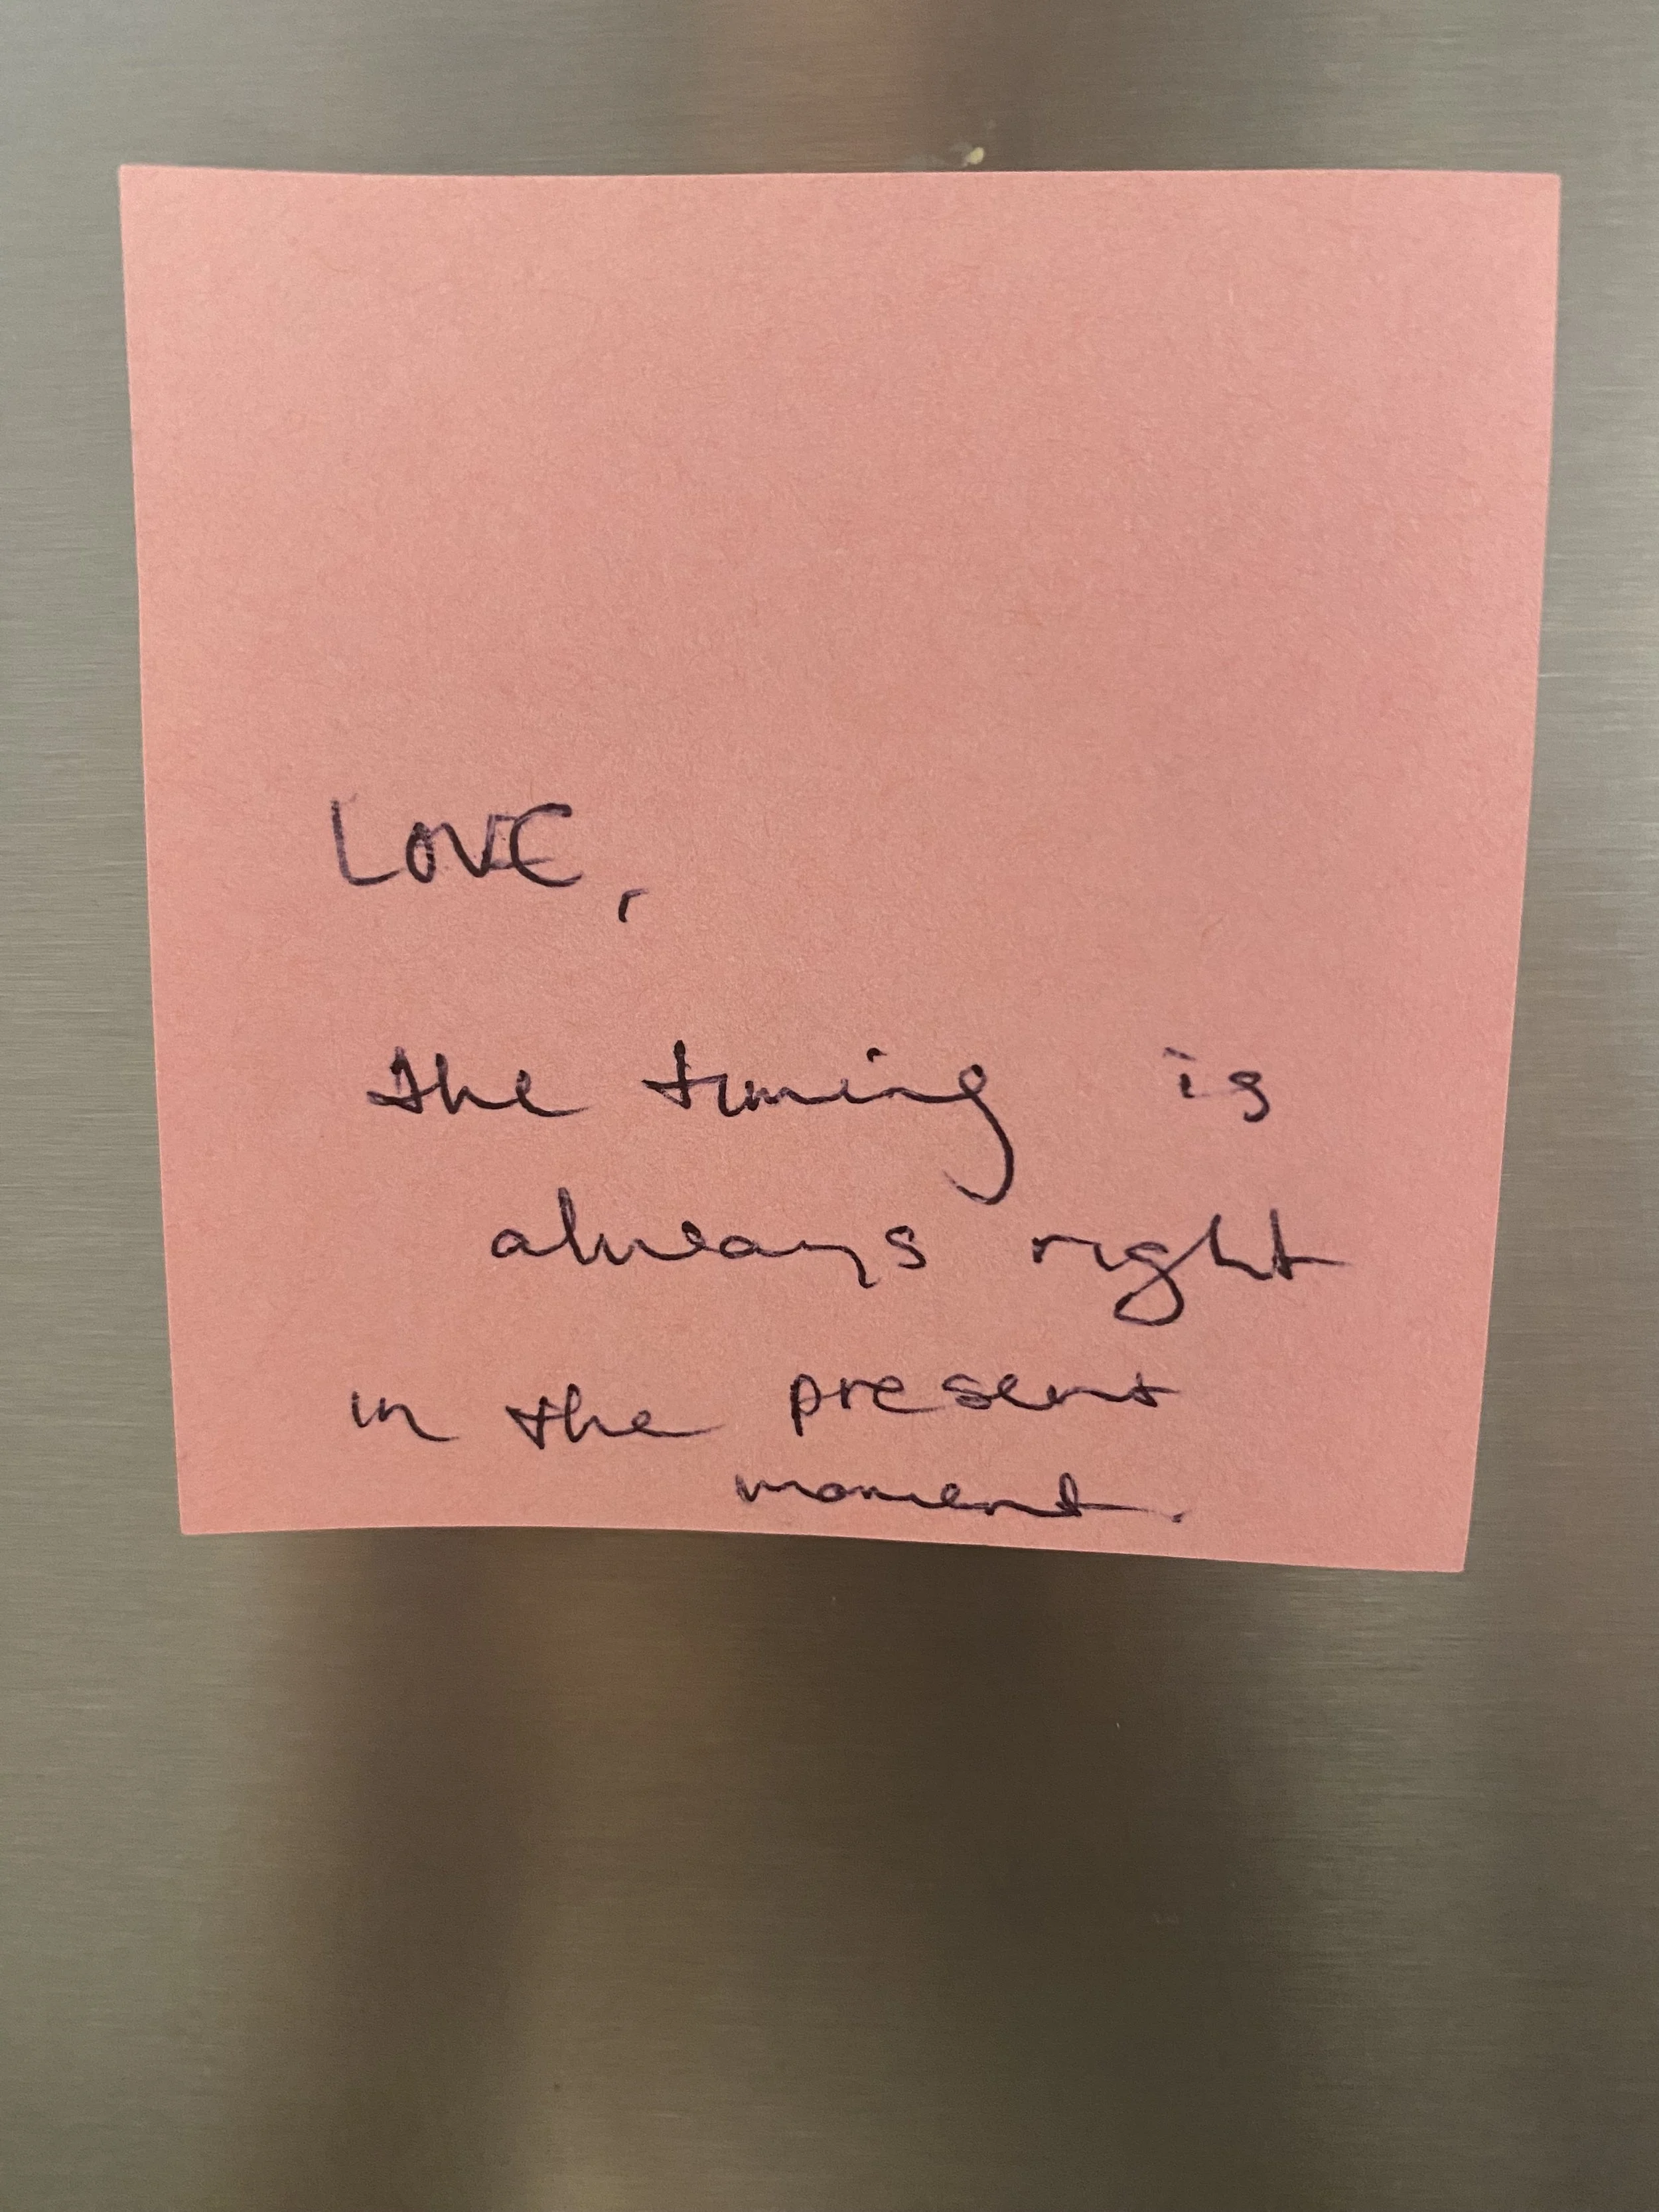 LOVE,
the timing is
always right
in the present
moment.